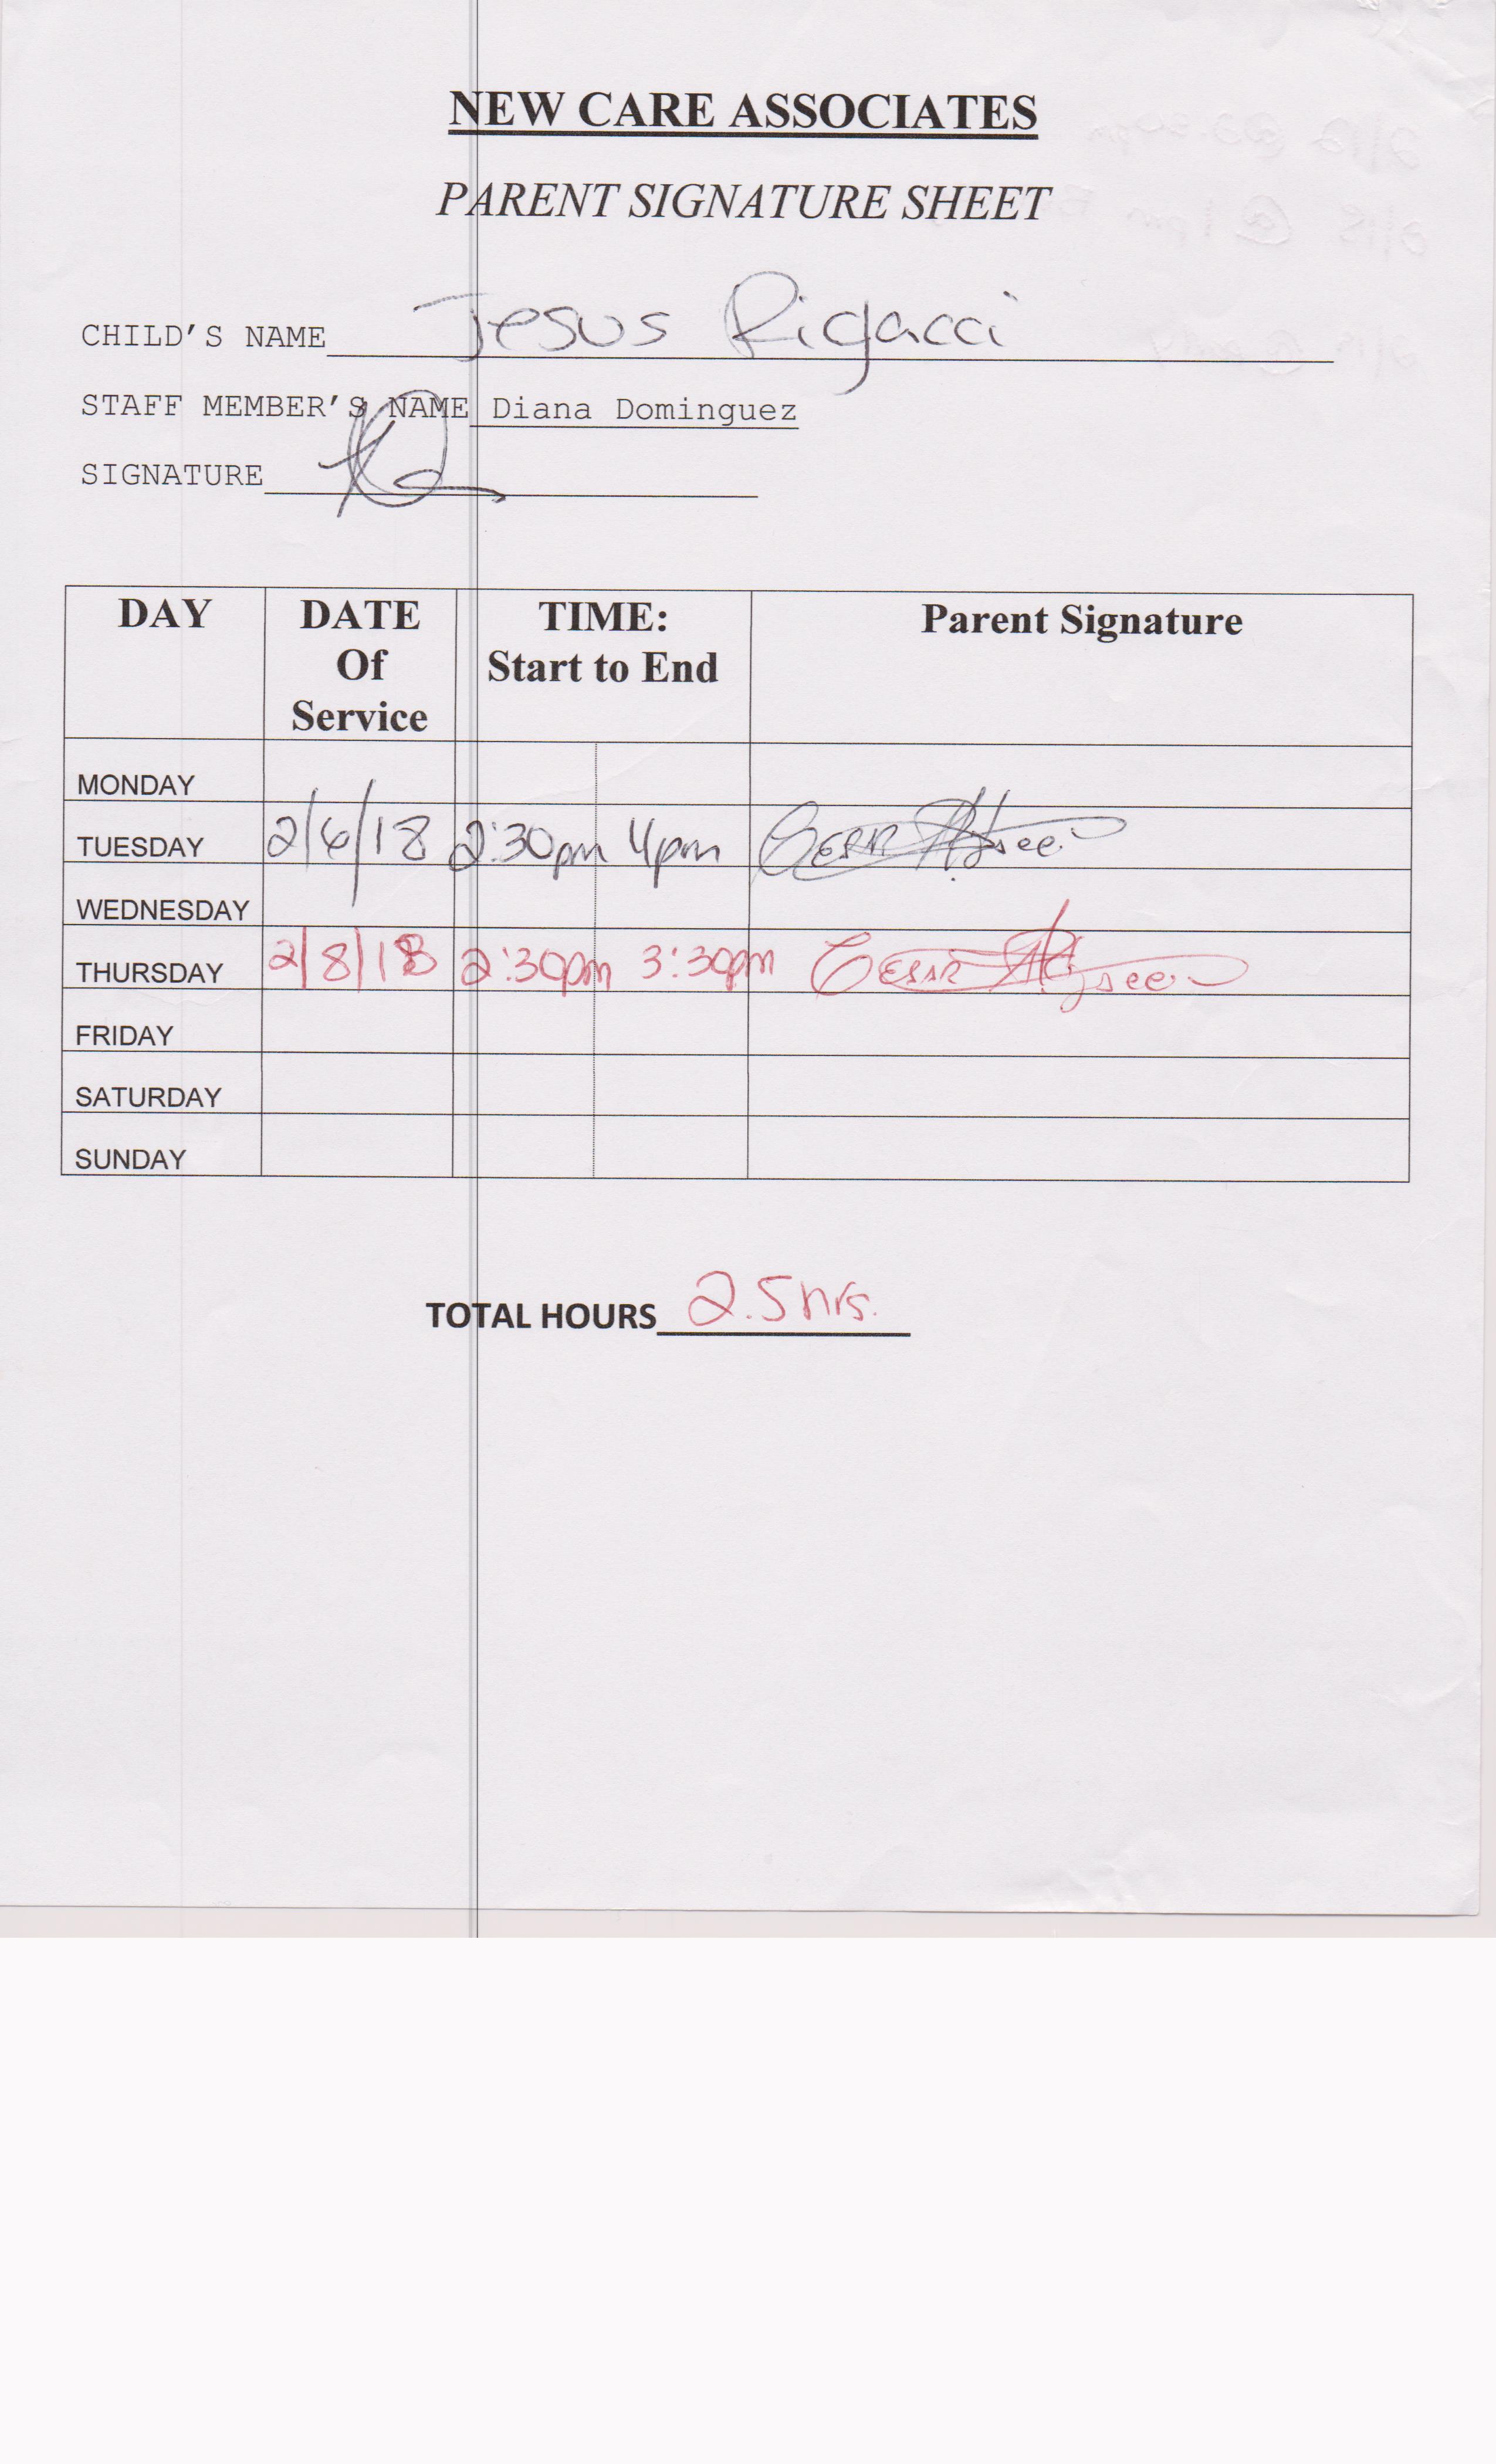 NEW CARE ASSOCIATES
PARENT SIGNATURE SHEET
CHILD'S NAME Jesus Rigacci
STAFF MEMBER'S NAME Diana Dominguez
SIGNATURE
DAY DATE Of Service TIME: Start to End Parent Signature
MONDAY
TUESDAY 2/6/18 2:30pm 4pm
WEDNESDAY
THURSDAY 2/8/18 2:30pm 3:30pm
FRIDAY
SATURDAY
SUNDAY
TOTAL HOURS 2.5 hrs.